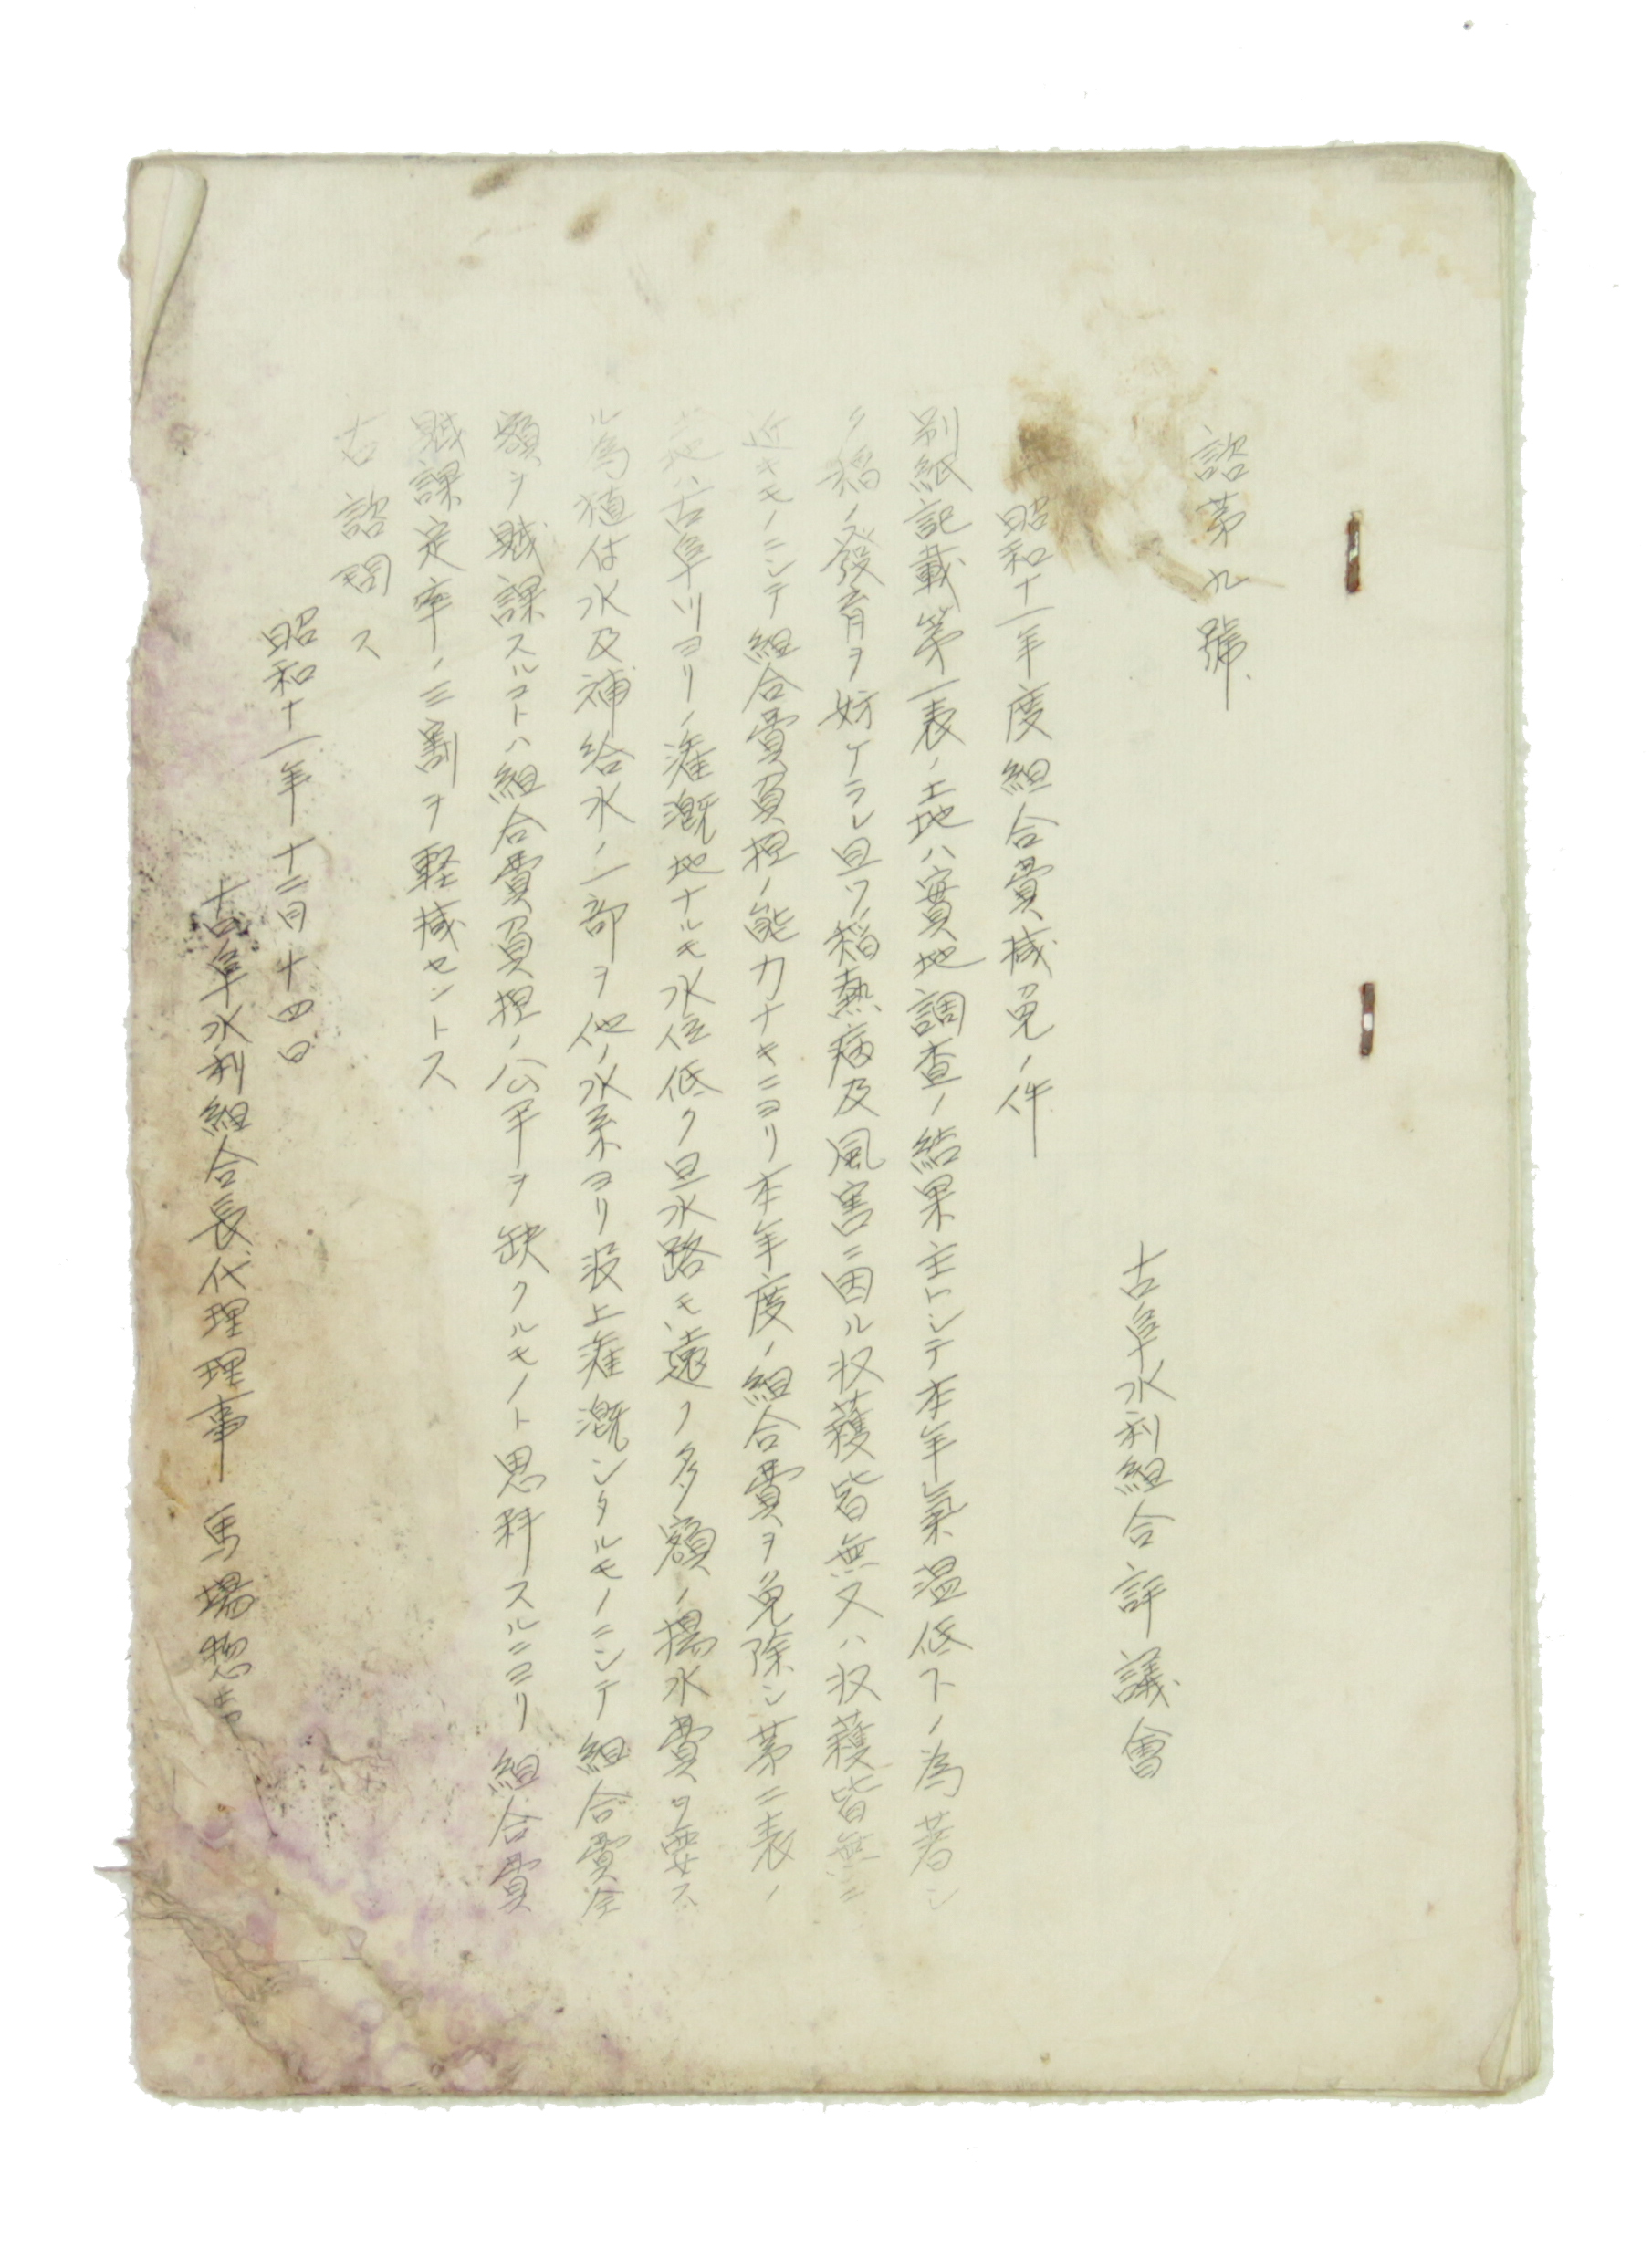 諮第九號
古阜水利組合評議會
一、昭和十一年度組合費減免ノ件
別紙記載第一表ノ土地ハ實地調査ノ結果主トシテ本年氣温低下ノ為著シ
ク稲ノ發育ヲ妨ケラレ且ツ稲熱病及風害ニ因ル収穫皆無又ハ収穫皆無ニ
近キモノニシテ組合費負担ノ能力ナキニヨリ本年度ノ組合費ヲ免除シ第二表ノ
土地ハ古阜川ヨリノ灌漑地ナルモ水位低ク且水路モ遠ク多額ノ揚水費ヲ要ス
ル為植付水及補給水ノ一部ヲ他ノ水系ヨリ汲上灌漑シタルモノニシテ組合費全
額ヲ賦課スルコトハ組合費負担ノ公平ヲ缺クルモノト思料スルニヨリ組合費
賦課定率ノ三割ヲ軽減セントス
右諮問ス
昭和十一年十二月十四日
古阜水利組合長代理理事 馬場惣吉